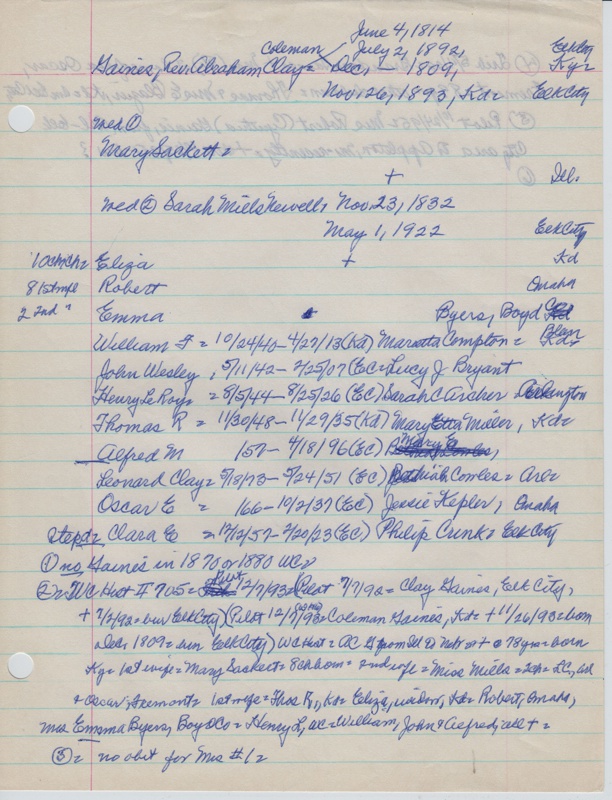 June 4, 1814
Coleman July 2, 1892, Elk City
Gaines, Rev. Abraham Clay = Dec, - 1809, Ky =
Nov. 26, 1893, Kd = Elk City
med ①
Mary Sackett =
+ Ill.
med ② Sarah Mills Newell, Nov. 23, 1832
May 1, 1922 Elk City
10 ch = Eliza + Kd
8 1st wife Robert Omaha
2 2nd " Emma Byers, Boyd Co
William F = 10/24/40 - 4/27/13 (Kd) Marietta Compton = Kd =
John Wesley, 5/11/42 - 2/25/07 (EC = Lucy J Bryant
Henry Le Roy = 8/5/44 - 8/25/26 (EC) Sarah C Archer = Arlington
Thomas R = 11/30/48 - 11/29/35 (Kd) Mary Etta Miller, Kd =
Alfred M 150 - 4/18/96 (EC) Mary E
Leonard Clay = 5/18/73 - 5/24/51 (EC) Bethiah Cowles = Are =
Oscar E = 166 - 10/2/37 (EC) Jessie Kepler, Omaha
stepd = Clara E = 12/2/57 - 2/20/23 (EC) Philip Crink = Elk City
① no Gaines in 1870 or 1880 WC =
② = WC Hist # 705 = 12/7/93 = Pilot 7/7/92 = Clay Gaines, Elk City,
+ 7/2/92 = bur Elk City) (Pilot 12/7/93 = Coleman Gaines, Kd = + 11/26/93 = born
Dec, 1809 = bur Elk City) WC Hist = AC G from Ill to Nebr + @ 78 yrs = born
Ky = 1st wife = Mary Sackett = 8 ch born = 2nd wife = Miss Mills = 2 ch = LC,
& Oscar Fremont = 1st wife = Thos R, Kd = Eliza, widow, Kd = Robert, Omaha,
Mrs Emma Byers, Boyd Co = Henry L, = William, John & Alfred, all + =
③ = no obit for Mrs #1 =